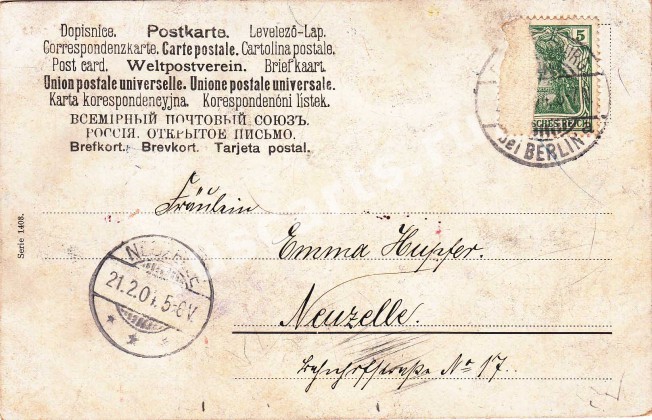 Dopisnice. Postkarte. Levelező-Lap.
Correspondenzkarte. Carte postale. Cartolina postale.
Post card. Weltpostverein. Briefkaart.
Union postale universelle. Unione postale universale.
Karta korespondencyjna. Korespondenóni lístek.
ВСЕМІРНЫЙ ПОЧТОВЫЙ СОЮЗЪ.
РОССІЯ. ОТКРЫТОЕ ПИСЬМО.
Brefkort. Brevkort. Tarjeta postal.
5
bei BERLIN
Fräulein
Emma Hupfer.
Neuzelle.
Bahnhofstraße No 17.
21.2.0 5-6V.
Serie 1408.